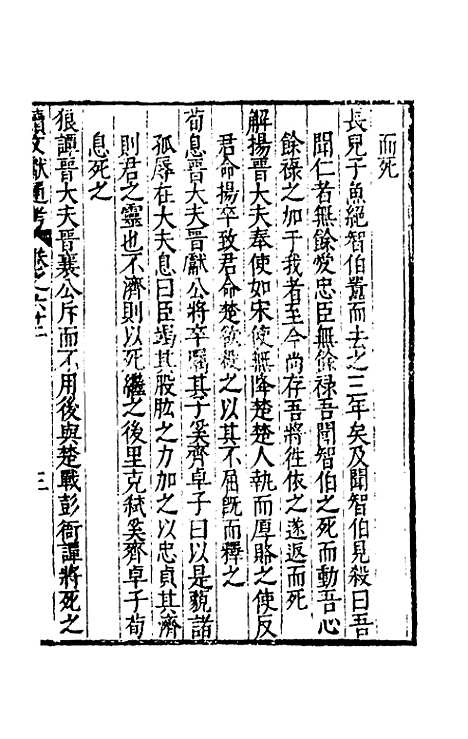 而死
長兒子魚絕智伯寵而去之三年矣及聞智伯見殺曰吾
聞仁者無餘愛忠臣無餘祿吾聞智伯之死而動吾心
餘祿之加于我者至今尚存吾將往依之遂返而死
解揚晉大夫奉使如宋使無降楚楚人執而厚賂之使反
君命揚卒致君命楚欲殺之以其不屈旣而釋之
荀息晉大夫晉獻公將卒屬其子奚齊卓子曰以是藐諸
孤辱在大夫息曰臣竭其股肱之力加之以忠貞其濟
則君之靈也不濟則以死繼之後里克弒奚齊卓子荀
息死之
狼譚晉大夫晉襄公斥而不用後與楚戰彭衙譚將死之
續文獻通考 卷之六十二 三